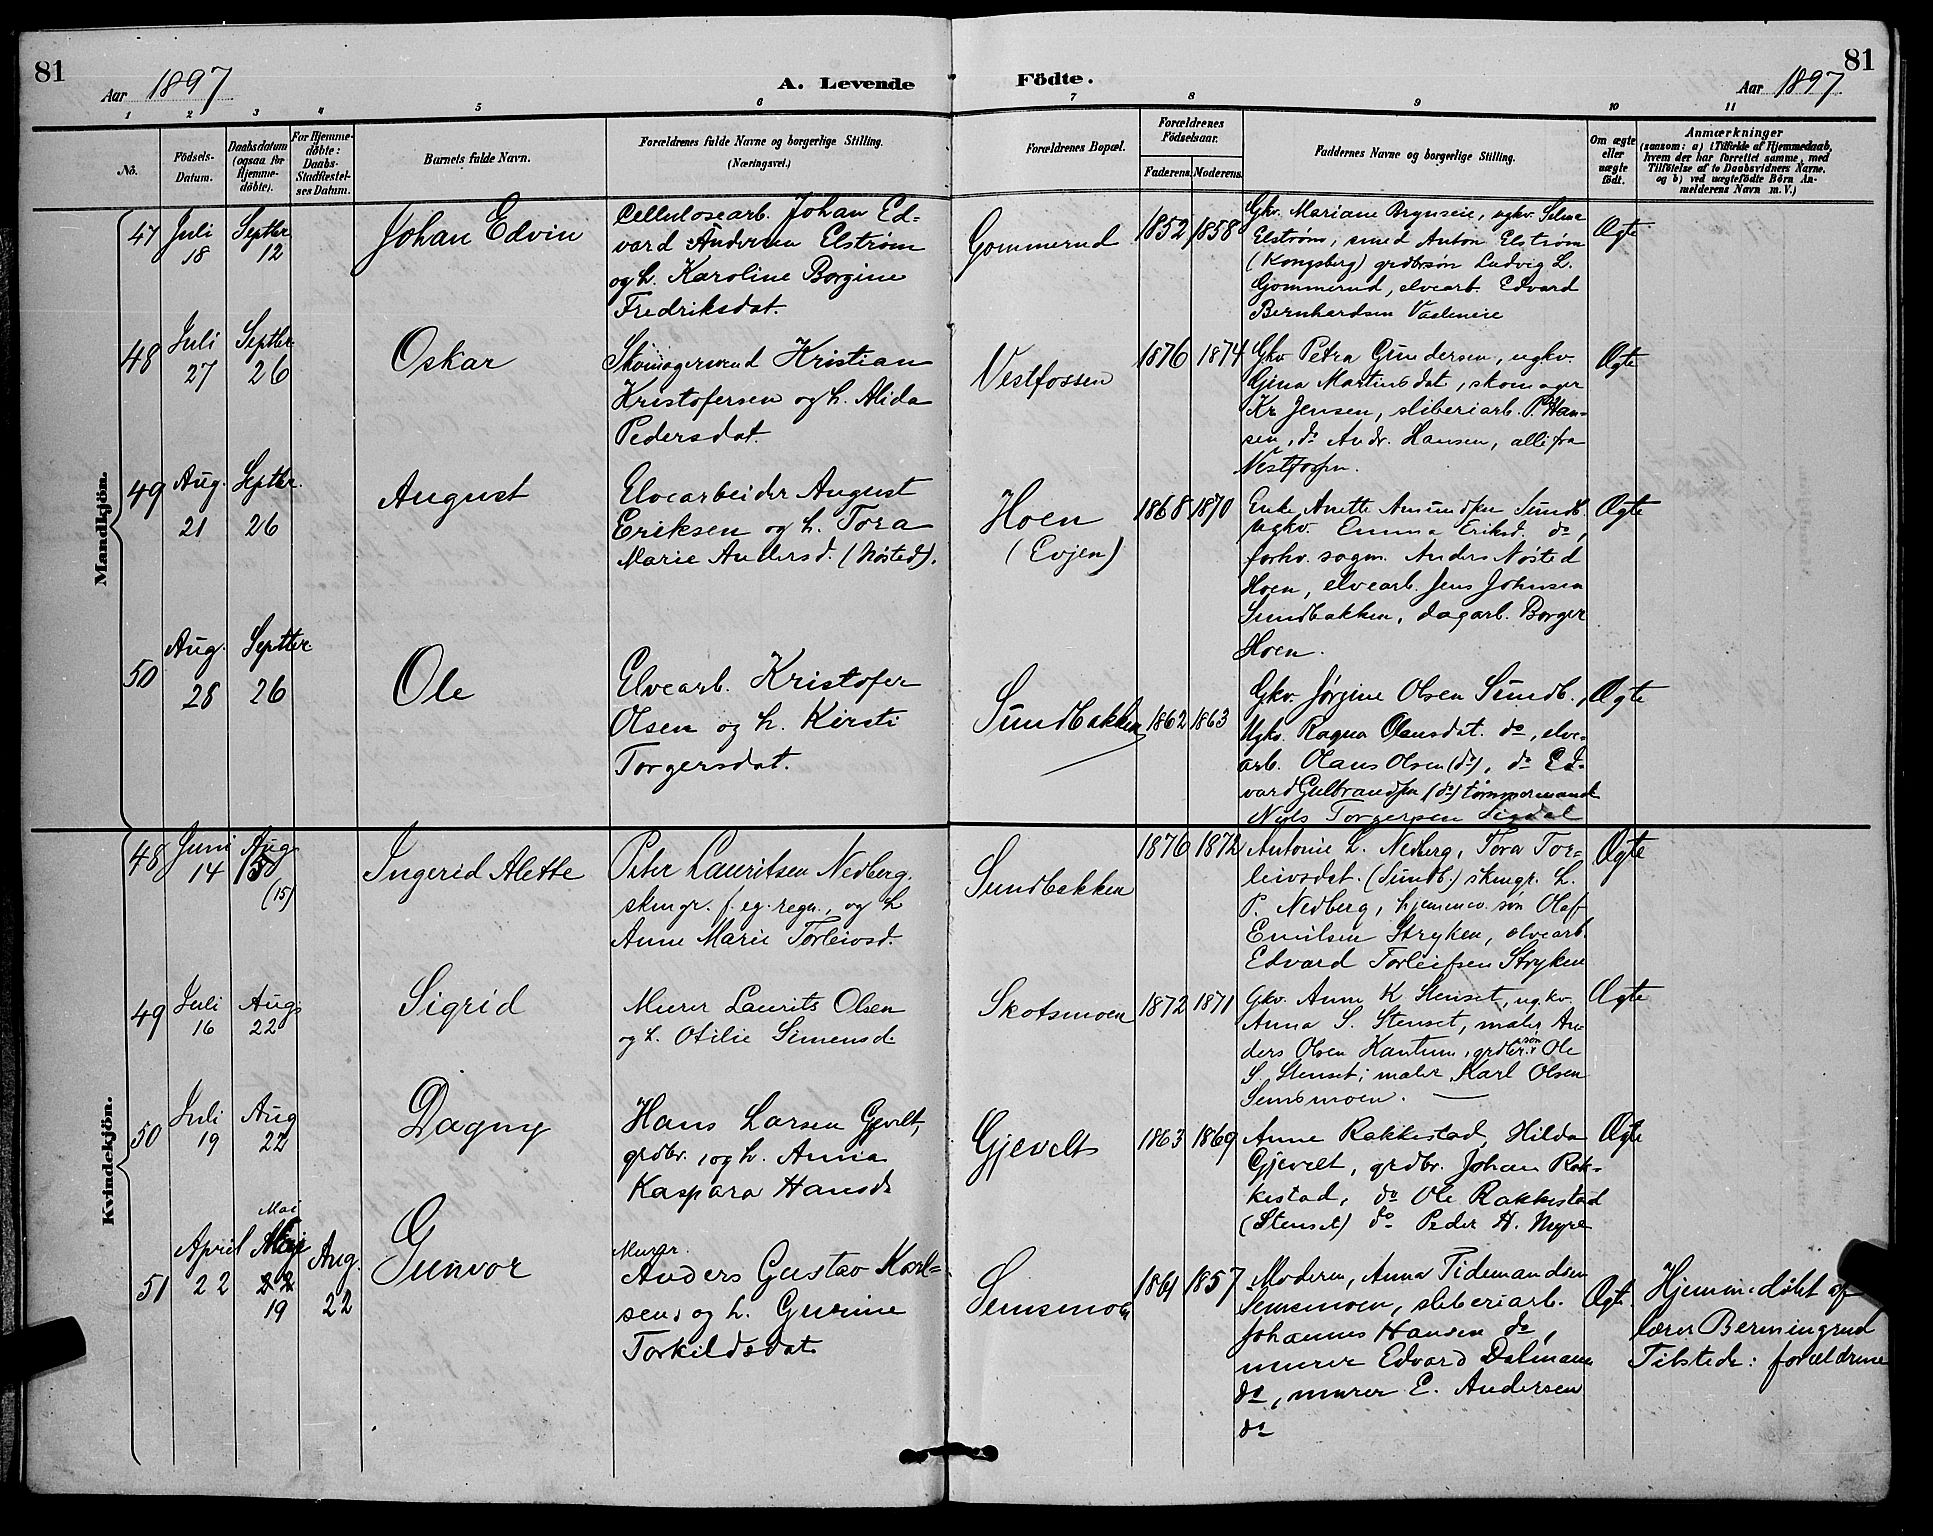 81
Aar 1897
A. Levende
Födte.
Aar 1897.
81
1 2 3 4 5 6 7 8 9 10 11
No.
Födsels-
Datum.
Daabsdatum
(ogsaa for
Hjemme-
döbte).
For Hjemme-
döbte:
Daabs-
Stadfæstel-
ses Datum.
Barnets fulde Navn.
Forældrenes fulde Navne og borgerlige Stilling.
(Næringsvei.)
Forældrenes Bopæl.
Forældrenes
Födselsaar.
Faderens.
Moderens.
Faddernes Navne og borgerlige Stilling.
Om ægte
eller
uægte
födt.
Anmærkninger
(saasom: a) i Tilfælde af Hjemmedaab,
hvem der har forrettet samme, med
Tilföielse af to Daabsvidners Navne,
og b) ved uægtefödte Börn An-
melderens Navn m. V.)
Mandkjön.
47
Juli
18
Septbr
12
Johan Edvin
Cellulosearb. Johan Ed-
vard Andersen Elström
og h. Karoline Borgine
Fredriksdat.
Gommerud
1852
1858
Gkv. Mariane Brynseie, ugkv. Selma
Elström, smed Anton Elström
(Kongsberg) grdbrsön Ludvig L.
Gommerud, elvearb. Edvard
Bernhardsen
Ægte
48
Juli
27
Septbr
26
Oskar
Skomagersvend Kristian
Kristofersen og h. Alida
Pedersdat.
Vestfossen
1876
1874
Gkv. Petra Gundersen, ugkv.
Gina Martinsdat, skomager
Kr Jensen, sliberiarb. P. Han-
sen, do Andr. Hansen, alle fra
Vestfossen.
Ægte
49
Aug.
21
Septbr.
26
August
Elvearbeider August
Eriksen og h. Tora
Marie Andersd. (Nøsted).
Hoen
(Evjen)
1868
1870
Enke Anette Amundsen Sundb.
ugkv. Emma Eriksd. do,
forhv. sagm. Anders Nøsted
Hoen, elvearb. Jens Johnsen
Sundbakken, dagarb. Borger
Hoen.
Ægte
50
Aug.
28
Septbr
26
Ole
Elvearb. Kristofer
Olsen og h. Kirsti
Torgersdat.
Sundbakken
1862
1863
Gkv. Jørgine Olsen Sundb.,
Ugkv. Ragna Olausdat. do, elve-
arb. Olaus Olsen (do), do Ed-
vard Gulbrandsen (do) tømmermand
Niels Torgersen Sigdal
Ægte
Kvindekjön.
48
Juni
14
Aug
15
(15)
Ingerid Alette
Peter Lauritsen Nedberg,
skmgr. f. eg. regn., og h
Anne Marie Torleivsd.
Sundbakken
1876
1872
Antonie L. Nedberg, Tora Tor-
leivsdat. (Sundb.) skmgr. L.
P. Nedberg, hjemmev. søn Olaf
Emilsen Stryken, elvearb.
Edvard Torleifsen Stryken
Ægte
49
Juli
16
Aug.
22
Sigrid
Murer Laurits Olsen
og h. Otilie Simensd.
Skotsmoen
1872
1871
Gkv. Anne K Stenset, ug.kv.
Anna S. Stenset, maler An-
ders Olsen Hantum, grdbr.søn Ole
S. Stenset; maler Karl Olsen
Semsmoen.
Ægte
50
Juli
19
Aug
22
Dagny
Hans Larsen Gjevelt,
grdbr., og h. Anna
Kaspara Hansd.
Gjevelt
1863
1869
Anne Rakkestad, Hilda
Gjevelt, grdbr. Johan Rak-
kestad, do Ole Rakkestad
(Stenset) do Peder H. Myre
Ægte
51
April
22
Mai
Mai
22
19
Aug.
22
Gunvor
Murer
Anders Gustav Karl-
sen, og h. Gurine
Torkildsdat
Semsmoen
1861
1857
Moderen, Anna Tidemandsen
Semsmoen, sliberiarb.
Johannes Hansen do,
murer Edvard Dalmann
do, murer E. Andersen
do
Ægte.
Hjemmedøbt af
lærer Bermingrud
Tilstede: forældrene